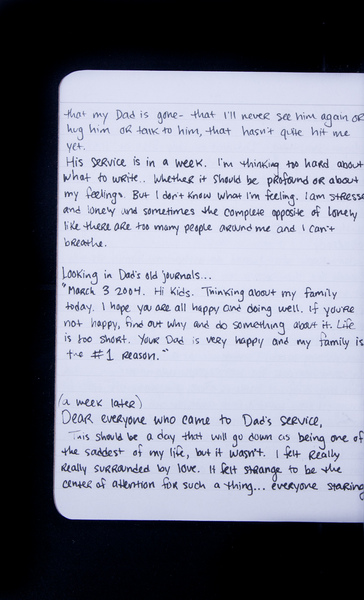 that my Dad is gone- that I'll never see him again or
hug him or talk to him, that hasn't quite hit me
yet.
His service is in a week. I'm thinking too hard about
what to write.. whether it should be profound or about
my feelings. But I don't know what I'm feeling. I am stresse
and lonely and sometimes the complete opposite of lonely
like there are too many people around me and I can't
breathe.
Looking in Dad's old journals...
"March 3 2004. Hi Kids. Thinking about my family
today. I hope you are all happy and doing well. If you're
not happy, find out why and do something about it. Life
is too short. Your Dad is very happy and my family is
the #1 reason."
(a week later)
Dear everyone who came to Dad's service,
This should be a day that will go down as being one of
the saddest of my life, but it wasn't. I felt really
really surrounded by love. It felt strange to be the
center of attention for such a thing... everyone staring